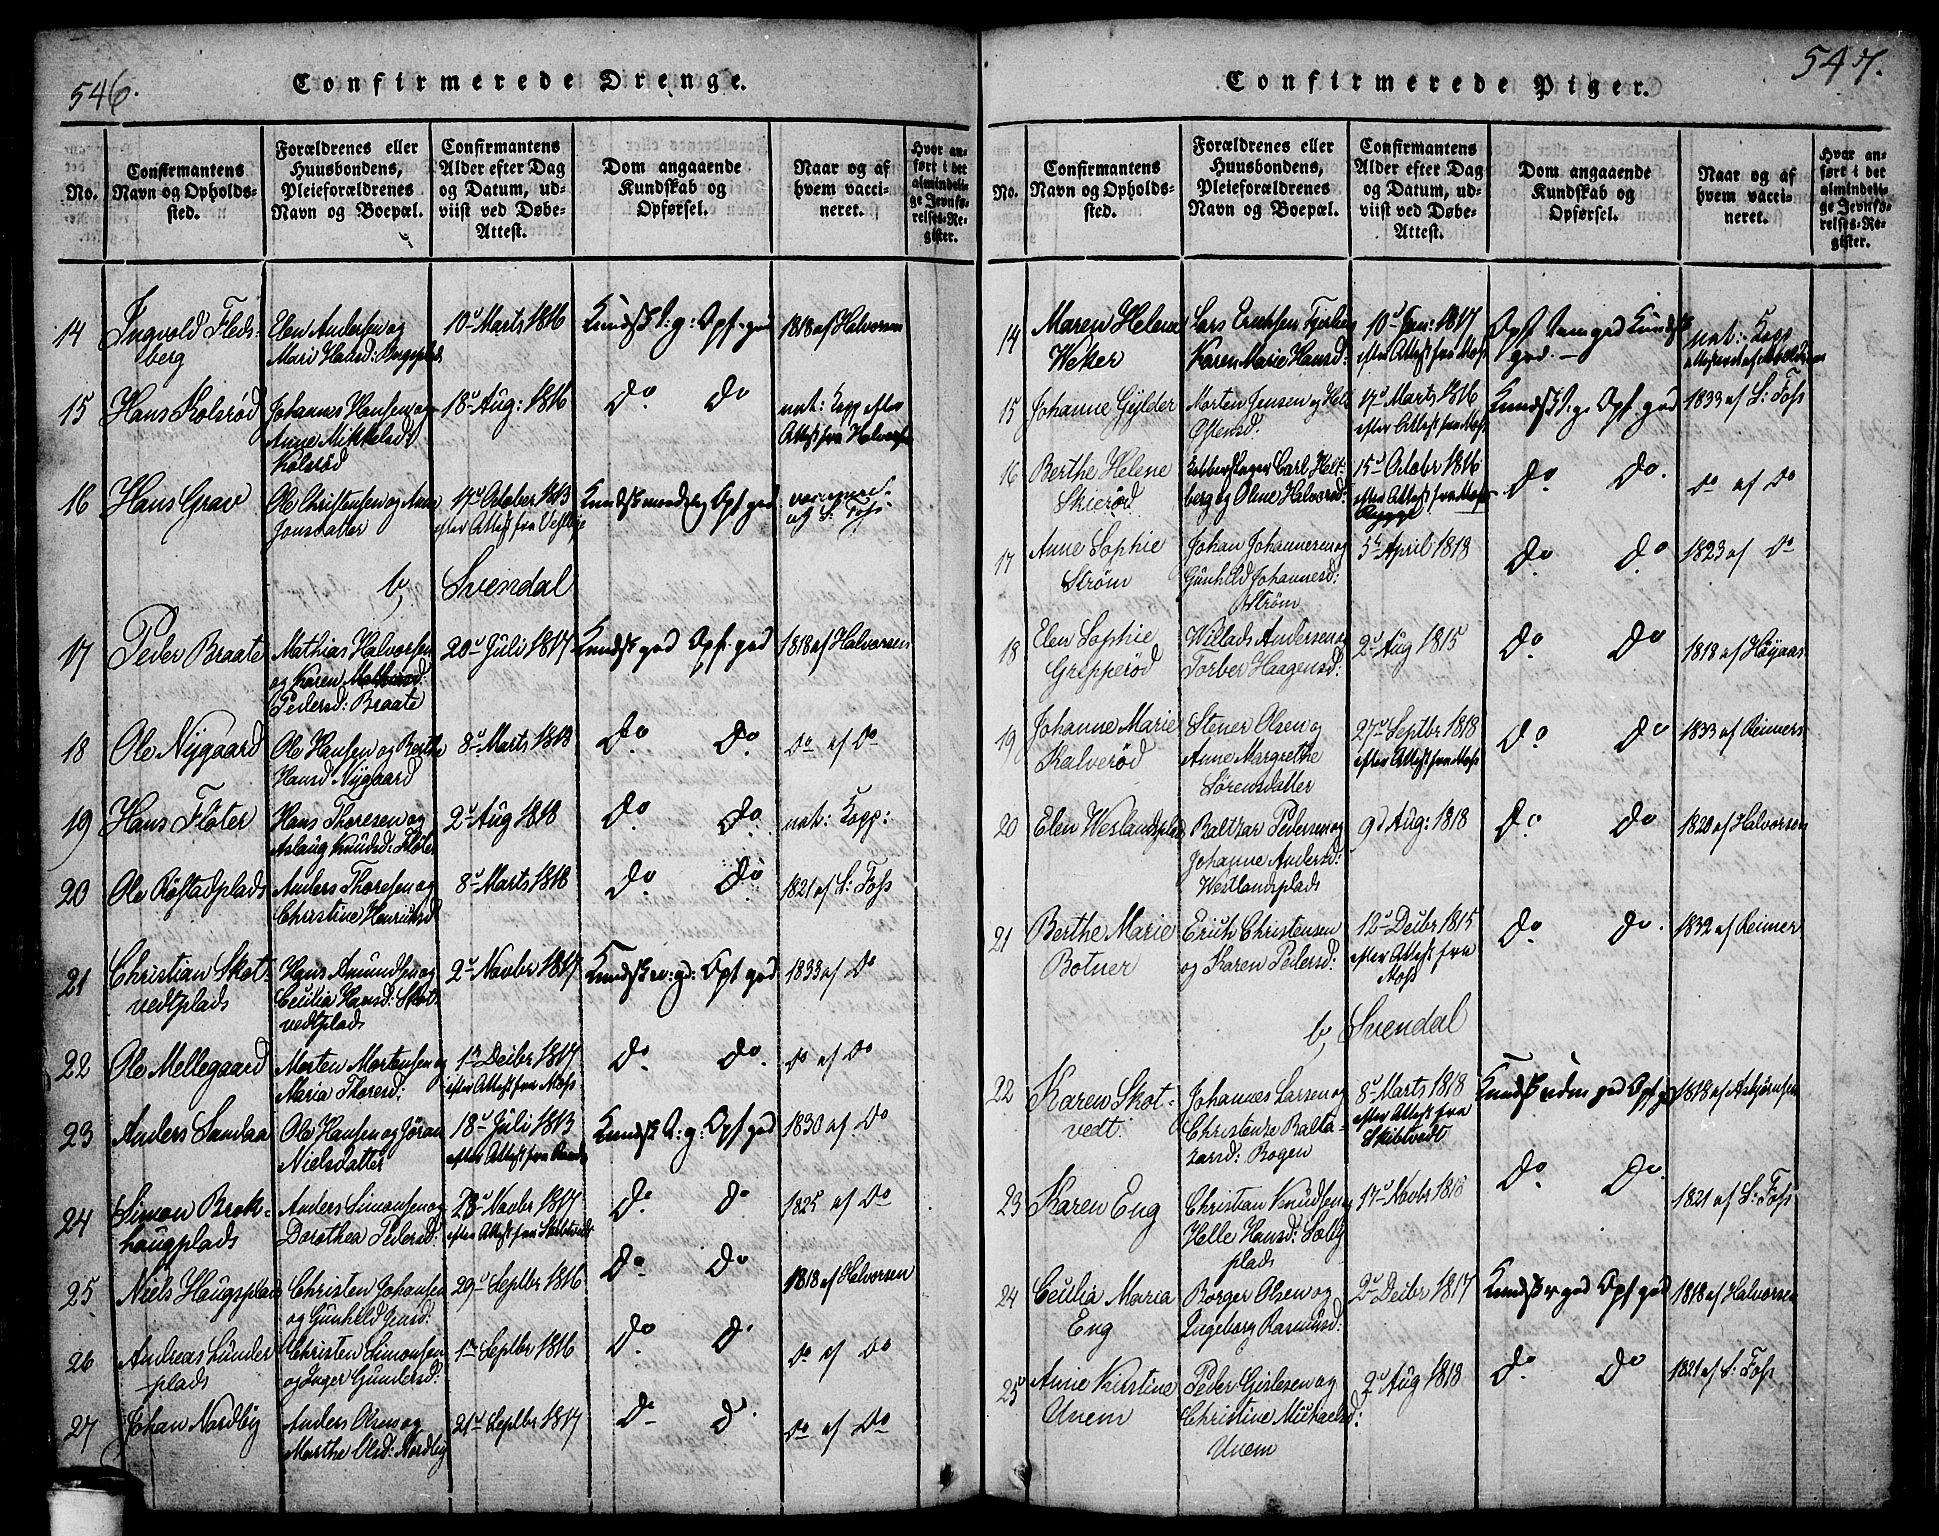 546.
Confirmerede Drenge.
No.
Confirmantens Navn og Opholds-sted.
Forældrenes eller Huusbondens, Pleieforældrenes Navn og Boepæl.
Confirmantens Alder efter Dag og Datum, ud-viist ved Døbe-Attest.
Dom angaaende Kundskab og Opførsel.
Naar og af hvem vacci-neret.
Hvor an-ført i det almindeli-ge Jevnfø-relses-Re-gister.
14 Ingvold Fleds- Elen Andersen og 10d Marts 1816 Kundsk t: g: Opf. god 1818 af Halvorsen
berg Mari Hansd:
15 Hans Kolsrød Johannes Hansen og 18d Aug: 1816 Do Do nat: Kopp efter
Anne Mikkelsd Attest fra Halvorsen
Kolsrød
16 Hans Grav Ole Christensen og Ane 17d October 1813 Kundsk maadelig Opf. god
Jonsdatter efter Attest fra Vestbye af S: Foss
b, Svendal
17 Peder Braate Mathias Halvorsen 20d Juli 1817 Kundsk god Opf. god 1818 af Halvorsen
og Karen
Pedersd: Braate
18 Ole Nygaard Ole Hansen og Berthe 8d Marts 1818 Do Do Do af Do
Hansd Nygaard
19 Hans Fløter Hans Thoresen og 2d Aug 1818 Do Do nat: Kopp:
Aslaug Knudsd: Fløter
20 Ole Røstadplads Anders Thoresen og 8d Marts 1818 Do Do 1821 af S: Foss
Christine Henriksd
21 Christian Skot- Hans Amundsen og 2d Novbr 1817 Kundsk m: gd: Opf god 1833 af Do
vedtplads Cecilia Hansd: Skot-
vedtplads
22 Ole Mellegaard Morten Mortensen og 1d Decbr 1817 Do Do Do af Do
Maria Thoresd: efter Attest fra Moss
23 Anders Sandaa Ole Hansen og Jøran 18d Juli 1813 Kundsk t: g: Opf god 1830 af Do
Nielsdatter efter Attest fra
24 Simon Brek- Anders Simonsen og 28d Novbr 1817 Do Do 1825 af Do
haugplads Dorothea Pedersd: efter Attest fra Skibtvedt
25 Niels Haugsplads Christen Johansen 29d Septbr 1816 Do Do 1818 af Halvorsen
og Gunhild Jensd:
26 Andreas Lunder Christen Simonsen 1d Septbr 1816 Do Do Do af Do
-plads og Inger Gundersd:
27 Johan Nordby Anders Olsen og 21d Septbr 1817 Do Do Do af Do
Marthe Olsd: Nordby
547.
Confirmerede Piger.
No.
Confirmantens Navn og Opholds-sted.
Forældrenes eller Huusbondens, Pleieforældrenes Navn og Boepæl.
Confirmantens Alder efter Dag og Datum, ud-viist ved Døbe-Attest.
Dom angaaende Kundskab og Opførsel.
Naar og af hvem vacci-neret.
Hvor an-ført i det almindeli-ge Jevnfø-relses-Re-gister.
14 Maren Helene Lars Erichsen 10d Jan: 1817 Opf. god Kundsk nat: Kopp
Weker Karen Marie Hansd: efter Attest fra Moss god.
15 Johanne Gylder Morten Jensen og Hele 17d Marts 1816 Kundsk t: g: Opf god 1833 af S: Foss
Ostensd: efter Attest fra Moss
16 Berthe Helene Kobberslager Carl Helt- 15d October 1816 Do Do Do af Do
Skierød berg og Oline Halvorsd: efter Attest fra
17 Anne Sophie Johan Johannesen og 5te April 1818 Do Do 1823 af Do
Strøm Gunhild Johannesd:
Strøm
18 Elen Sophie Willads Andersen og 2d Aug 1815 Do Do 1818 af Høyaas
Gripperød Torber Haagensd:
19 Johanne Marie Stener Olsen og 27d Septbr 1818 Do Do 1833 af Reiners
Kalverød Anne Margrethe efter Attest fra Moss
Sørensdatter
20 Elen Weslandsplads Baltzar Pedersen og 9d Aug: 1818 Do Do 1820 af Halvorsen
Johanne Andersd:
Westlandsplads
21 Berthe Marie Erich Christensen 12d Decbr 1815 Do Do 1832 af Reiner
Botner og Karen Pedersd: efter Attest fra
Moss
b, Svendal
22 Karen Skot- Johannes Larsen og 8d Marts 1818 Kundsk god Opf god 1818 af Asbjørnsen
vedt. Christenze Balta- efter Attest fra
zarsd: Bogen Skibtvedt
23 Karen Eng Christian Knudsen og 17d Novbr 1818 Do Do 1821 af S: Foss
Helle Hansd: Solbg
plads
24 Cecilia Maria Borger Olsen og 2d Decbr 1817 Kundsk god Opf god 1818 af Halvorsen
Eng Ingeborg Rasmusd:
25 Anne Kirstine Peder Girlesen og 2d Aug 1818 Do Do 1821 af S: Foss
Unem Christine Michaelsd:
Unem